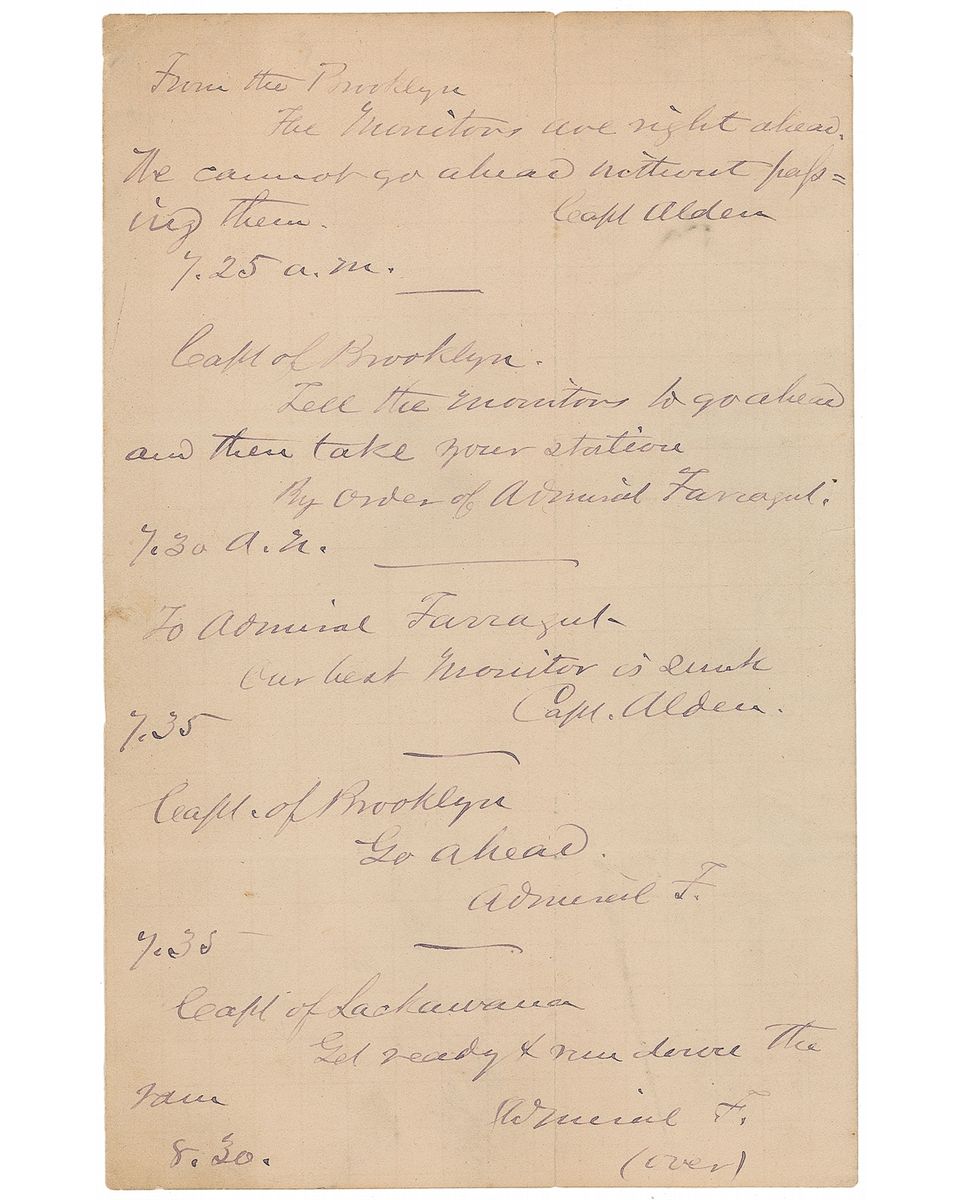 From the Brooklyn
The Monitors are right ahead.
We cannot go ahead without pass=
ing them. Capt Alden
7.25 a.m.
Capt of Brooklyn.
Tell the Monitors to go ahead
and then take your station
By order of Admiral Farragut.
7.30 A.M.
To Admiral Farragut
Our best Monitor is sunk
Capt. Alden.
7.35
Capt. of Brooklyn
Go ahead.
Admiral F.
7.35
Capt of Lackawana
Get ready & run down the
ram
Admiral F.
8.30.
(over)